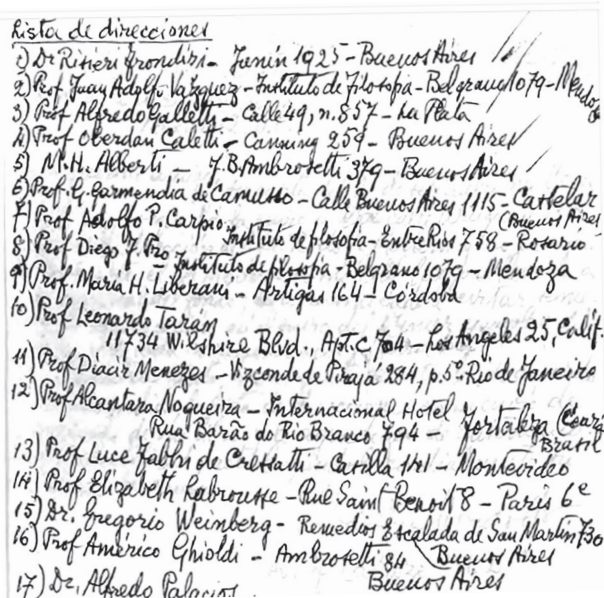 Lista de direcciones
1) Dr Risieri Frondizi - Junín 1925 - Buenos Aires
2) Prof. Juan Adolfo Vázquez - Instituto de Filosofia - Belgrano 1079 - Mendoza
3) Prof Alfredo Galletti - Calle 49, n. 857 - La Plata
4) Prof Oberdan Caletti - Canning 259 - Buenos Aires
5) M.H. Alberti - J.B. Ambrosetti 379 - Buenos Aires
6) Prof. G. Garmendia de Camusso - Calle Buenos Aires 1115 - Castelar
(Buenos Aires
7) Prof Adolfo P. Carpio - Instituto de filosofia - Entre Rios 758 - Rosario
8) Prof Diego F. Pro - Instituto de filosofia - Belgrano 1079 - Mendoza
9) Prof. María H. Liberani - Artigas 164 - Córdoba
10) Prof Leonardo Tarán
11734 Wilshire Blvd., Apt. C 704 - Los Angeles 25, Calif.
11) Prof Djacir Menezes - Vizconde de Pirajá 284, p. 5º - Rio de Janeiro
12) Prof Alcantara Nogueira - Internacional Hotel
Rua Barão do Rio Branco 794 - Fortaleza (Ceará
Brasil
13) Prof Luce Fabbri de Cressatti - Casilla 141 - Montevideo
14) Prof Elizabeth Labrousse - Rue Saint Benoit 8 - Paris 6e
15) Dr. Gregorio Weinberg - Remedios Escalada de San Martin 730
(Buenos Aires
16) Prof Américo Ghioldi - Ambrosetti 84
Buenos Aires
17) Dr. Alfredo Palacios